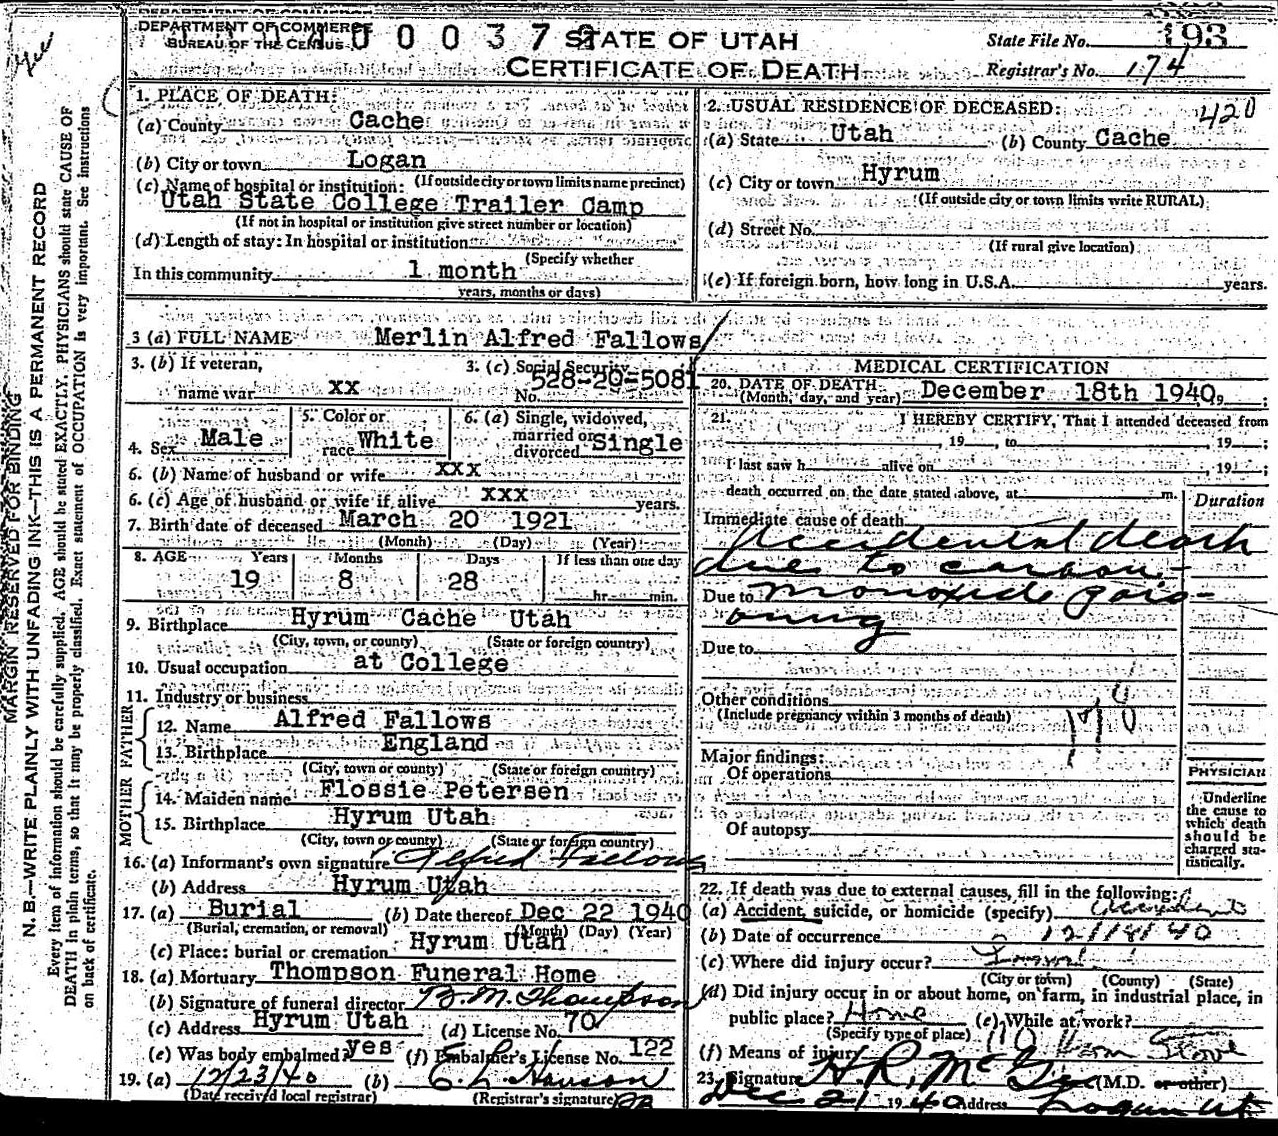 DEPARTMENT OF COMMERCE
BUREAU OF THE CENSUS
0 0 0 3 7
STATE OF UTAH
CERTIFICATE OF DEATH
State File No. 193
Registrar's No. 174
MARGIN RESERVED FOR BINDING
N. B.—WRITE PLAINLY WITH UNFADING INK—THIS IS A PERMANENT RECORD
Every item of information should be carefully supplied. AGE should be stated EXACTLY. PHYSICIANS should state CAUSE OF
DEATH in plain terms, so that it may be properly classified. Exact statement of OCCUPATION is very important. See instructions
on back of certificate.
1. PLACE OF DEATH:
(a) County Cache
(b) City or town Logan
(c) Name of hospital or institution: (If outside city or town limits name precinct)
Utah State College Trailer Camp
(If not in hospital or institution give street number or location)
(d) Length of stay: In hospital or institution
(Specify whether
In this community 1 month
years, months or days)
2. USUAL RESIDENCE OF DECEASED: 420
(a) State Utah (b) County Cache
(c) City or town Hyrum
(If outside city or town limits write RURAL)
(d) Street No.
(If rural give location)
(e) If foreign born, how long in U.S.A. years.
3 (a) FULL NAME Merlin Alfred Fallows
3. (b) If veteran,
name war xx
3. (c) Social Security
No. 528-20-5081
4. Sex Male
5. Color or
race White
6. (a) Single, widowed,
married or
divorced Single
6. (b) Name of husband or wife xxx
6. (c) Age of husband or wife if alive xxx years.
7. Birth date of deceased March 20 1921
(Month) (Day) (Year)
8. AGE Years Months Days If less than one day
19 8 28 hr. min.
9. Birthplace Hyrum Cache Utah
(City, town, or county) (State or foreign country)
10. Usual occupation at College
11. Industry or business
FATHER
12. Name Alfred Fallows
13. Birthplace England
(City, town or county) (State or foreign country)
MOTHER
14. Maiden name Flossie Petersen
15. Birthplace Hyrum Utah
(City, town or county) (State or foreign country)
16. (a) Informant's own signature Alfred Fallows
(b) Address Hyrum Utah
17. (a) Burial (b) Date thereof Dec 22 1940
(Burial, cremation, or removal) (Month) (Day) (Year)
(c) Place: burial or cremation Hyrum Utah
18. (a) Mortuary Thompson Funeral Home
(b) Signature of funeral director B. M. Thompson
(c) Address Hyrum Utah (d) License No. 70
(e) Was body embalmed? yes (f) Embalmer's License No. 122
19. (a) 12/23/40 (b) E. L. Hanson
(Date received local registrar) (Registrar's signature)
MEDICAL CERTIFICATION
20. DATE OF DEATH December 18th 1940,
(Month, day, and year)
21. I HEREBY CERTIFY, That I attended deceased from
, 19 , to , 19 ;
I last saw h alive on , 19 ;
death occurred on the date stated above, at m.
Duration
Immediate cause of death
Accidental death
due to carbon-
Due to monoxide pois-
oning
Due to
Other conditions
(Include pregnancy within 3 months of death)
178
Major findings:
Of operations
Of autopsy
PHYSICIAN
Underline
the cause to
which death
should be
charged sta-
tistically.
22. If death was due to external causes, fill in the following:
(a) Accident, suicide, or homicide (specify) accident
(b) Date of occurrence 12/18/40
(c) Where did injury occur?
(City or town) (County) (State)
(d) Did injury occur in or about home, on farm, in industrial place, in
public place? Home (e) While at work? no
(Specify type of place)
(f) Means of injury Stove
23. Signature H. R. McGee (M.D. or other)
Dec 21 1940 Address Logan Ut